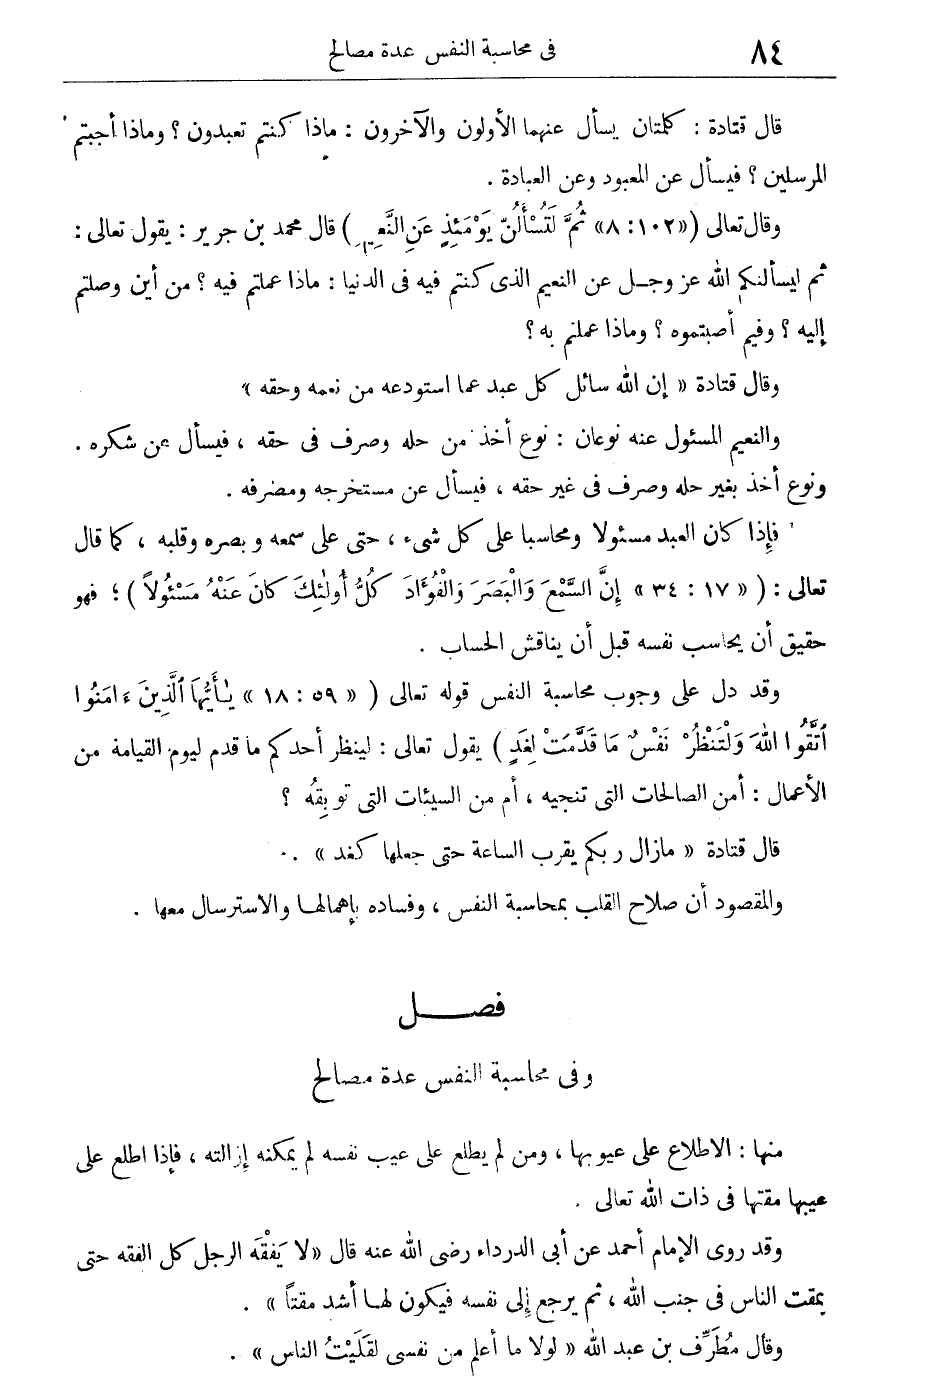 ٨٤
فى محاسبة النفس عدة مصالح
قال قتادة : كلمتان يسأل عنهما الأولون والآخرون : ماذا كنتم تعبدون ؟ وماذا أجبتم
المرسلين ؟ فيسأل عن المعبود وعن العبادة .
وقال تعالى («١٠٢ : ٨» ثُمَّ لَتُسْأَلُنّ يَوْمَئِذٍ عَنِ النَّعِيمِ ) قال محمد بن جرير : يقول تعالى :
ثم ليسألنكم الله عز وجـل عن النعيم الذى كنتم فيه فى الدنيا : ماذا عملتم فيه ؟ من أين وصلتم
إليه ؟ وفيم أصبتموه ؟ وماذا عملتم به ؟
وقال قتادة « إن الله سائل كل عبد عما استودعه من نعمه وحقه »
والنعيم المسئول عنه نوعان : نوع أخذ من حله وصرف فى حقه ، فيسأل عن شكره .
ونوع أخذ بغير حله وصرف فى غير حقه ، فيسأل عن مستخرجه ومصرفه .
فإذا كان العبد مسئولا ومحاسبا على كل شىء ، حتى على سمعه وبصره وقلبه ، كما قال
تعالى : ( « ١٧ : ٣٤ » إِنَّ السَّمْعَ وَالْبَصَرَ وَالْفُؤَادَ كُلُّ أُولٰئِكَ كَانَ عَنْهُ مَسْئُولاً ) ؛ فهو
حقيق أن يحاسب نفسه قبل أن يناقش الحساب .
وقد دل على وجوب محاسبة النفس قوله تعالى ( « ٥٩ : ١٨ » يَـٰأَيُّهَا ٱلَّذِينَ ءَامَنُوا
ٱتَّقُوا اللهَ وَلْتَنْظُرْ نَفْسٌ مَا قَدَّمَتْ لِغَدٍ ) يقول تعالى : لينظر أحدكم ما قدم ليوم القيامة من
الأعمال : أمن الصالحات التى تنجيه ، أم من السيئات التى توبِقُه ؟
قال قتادة « مازال ربكم يقرب الساعة حتى جعلها كغد » .
والمقصود أن صلاح القلب بمحاسبة النفس ، وفساده بإهمالهـا والاسترسال معها .
فصــــل
وفى محاسبة النفس عدة مصالح
منها : الاطلاع على عيوبها ، ومن لم يطلع على عيب نفسه لم يمكنه إزالته ، فإذا اطلع على
عيبها مقتها فى ذات الله تعالى .
وقد روى الإمام أحمد عن أبى الدرداء رضى الله عنه قال «لا يَفْقَه الرجل كل الفقه حتى
يمقت الناس فى جنب الله ، ثم يرجع إلى نفسه فيكون لهـا أشد مقتاً » .
وقال مُطَرِّف بن عبد الله « لولا ما أعلم من نفسى لقَلَيْتُ الناس » .